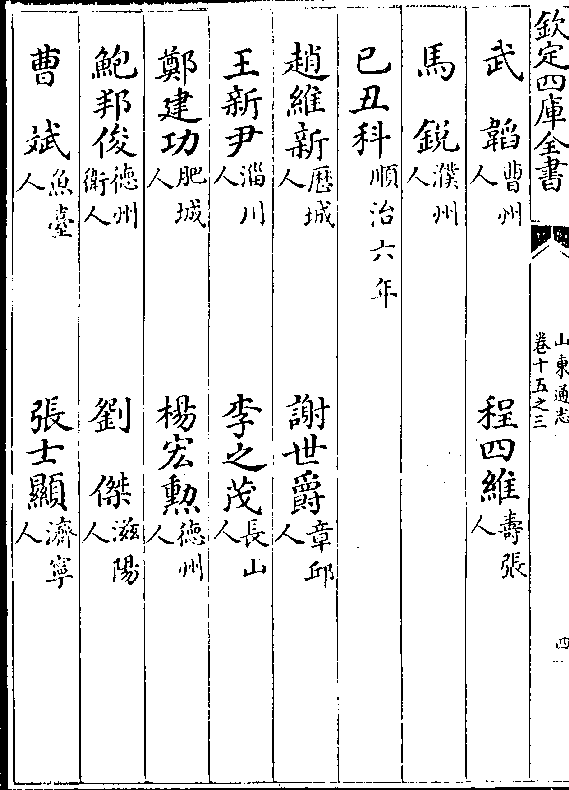 欽定四庫全書
山東通志
卷十五之三
四
武韜曹州人 程四維壽張人
馬銳濮州人
己丑科順治六年
趙維新歷城人 謝世爵章邱人
王新尹淄川人 李之茂長山人
鄭建功肥城人 楊宏勲德州人
鮑邦俊德州衛人 劉傑滋陽人
曹斌魚臺人 張士顯濟寧人